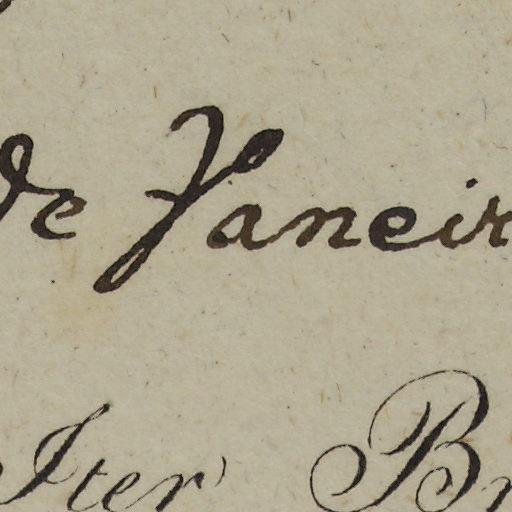 de Janeir
Iter Br